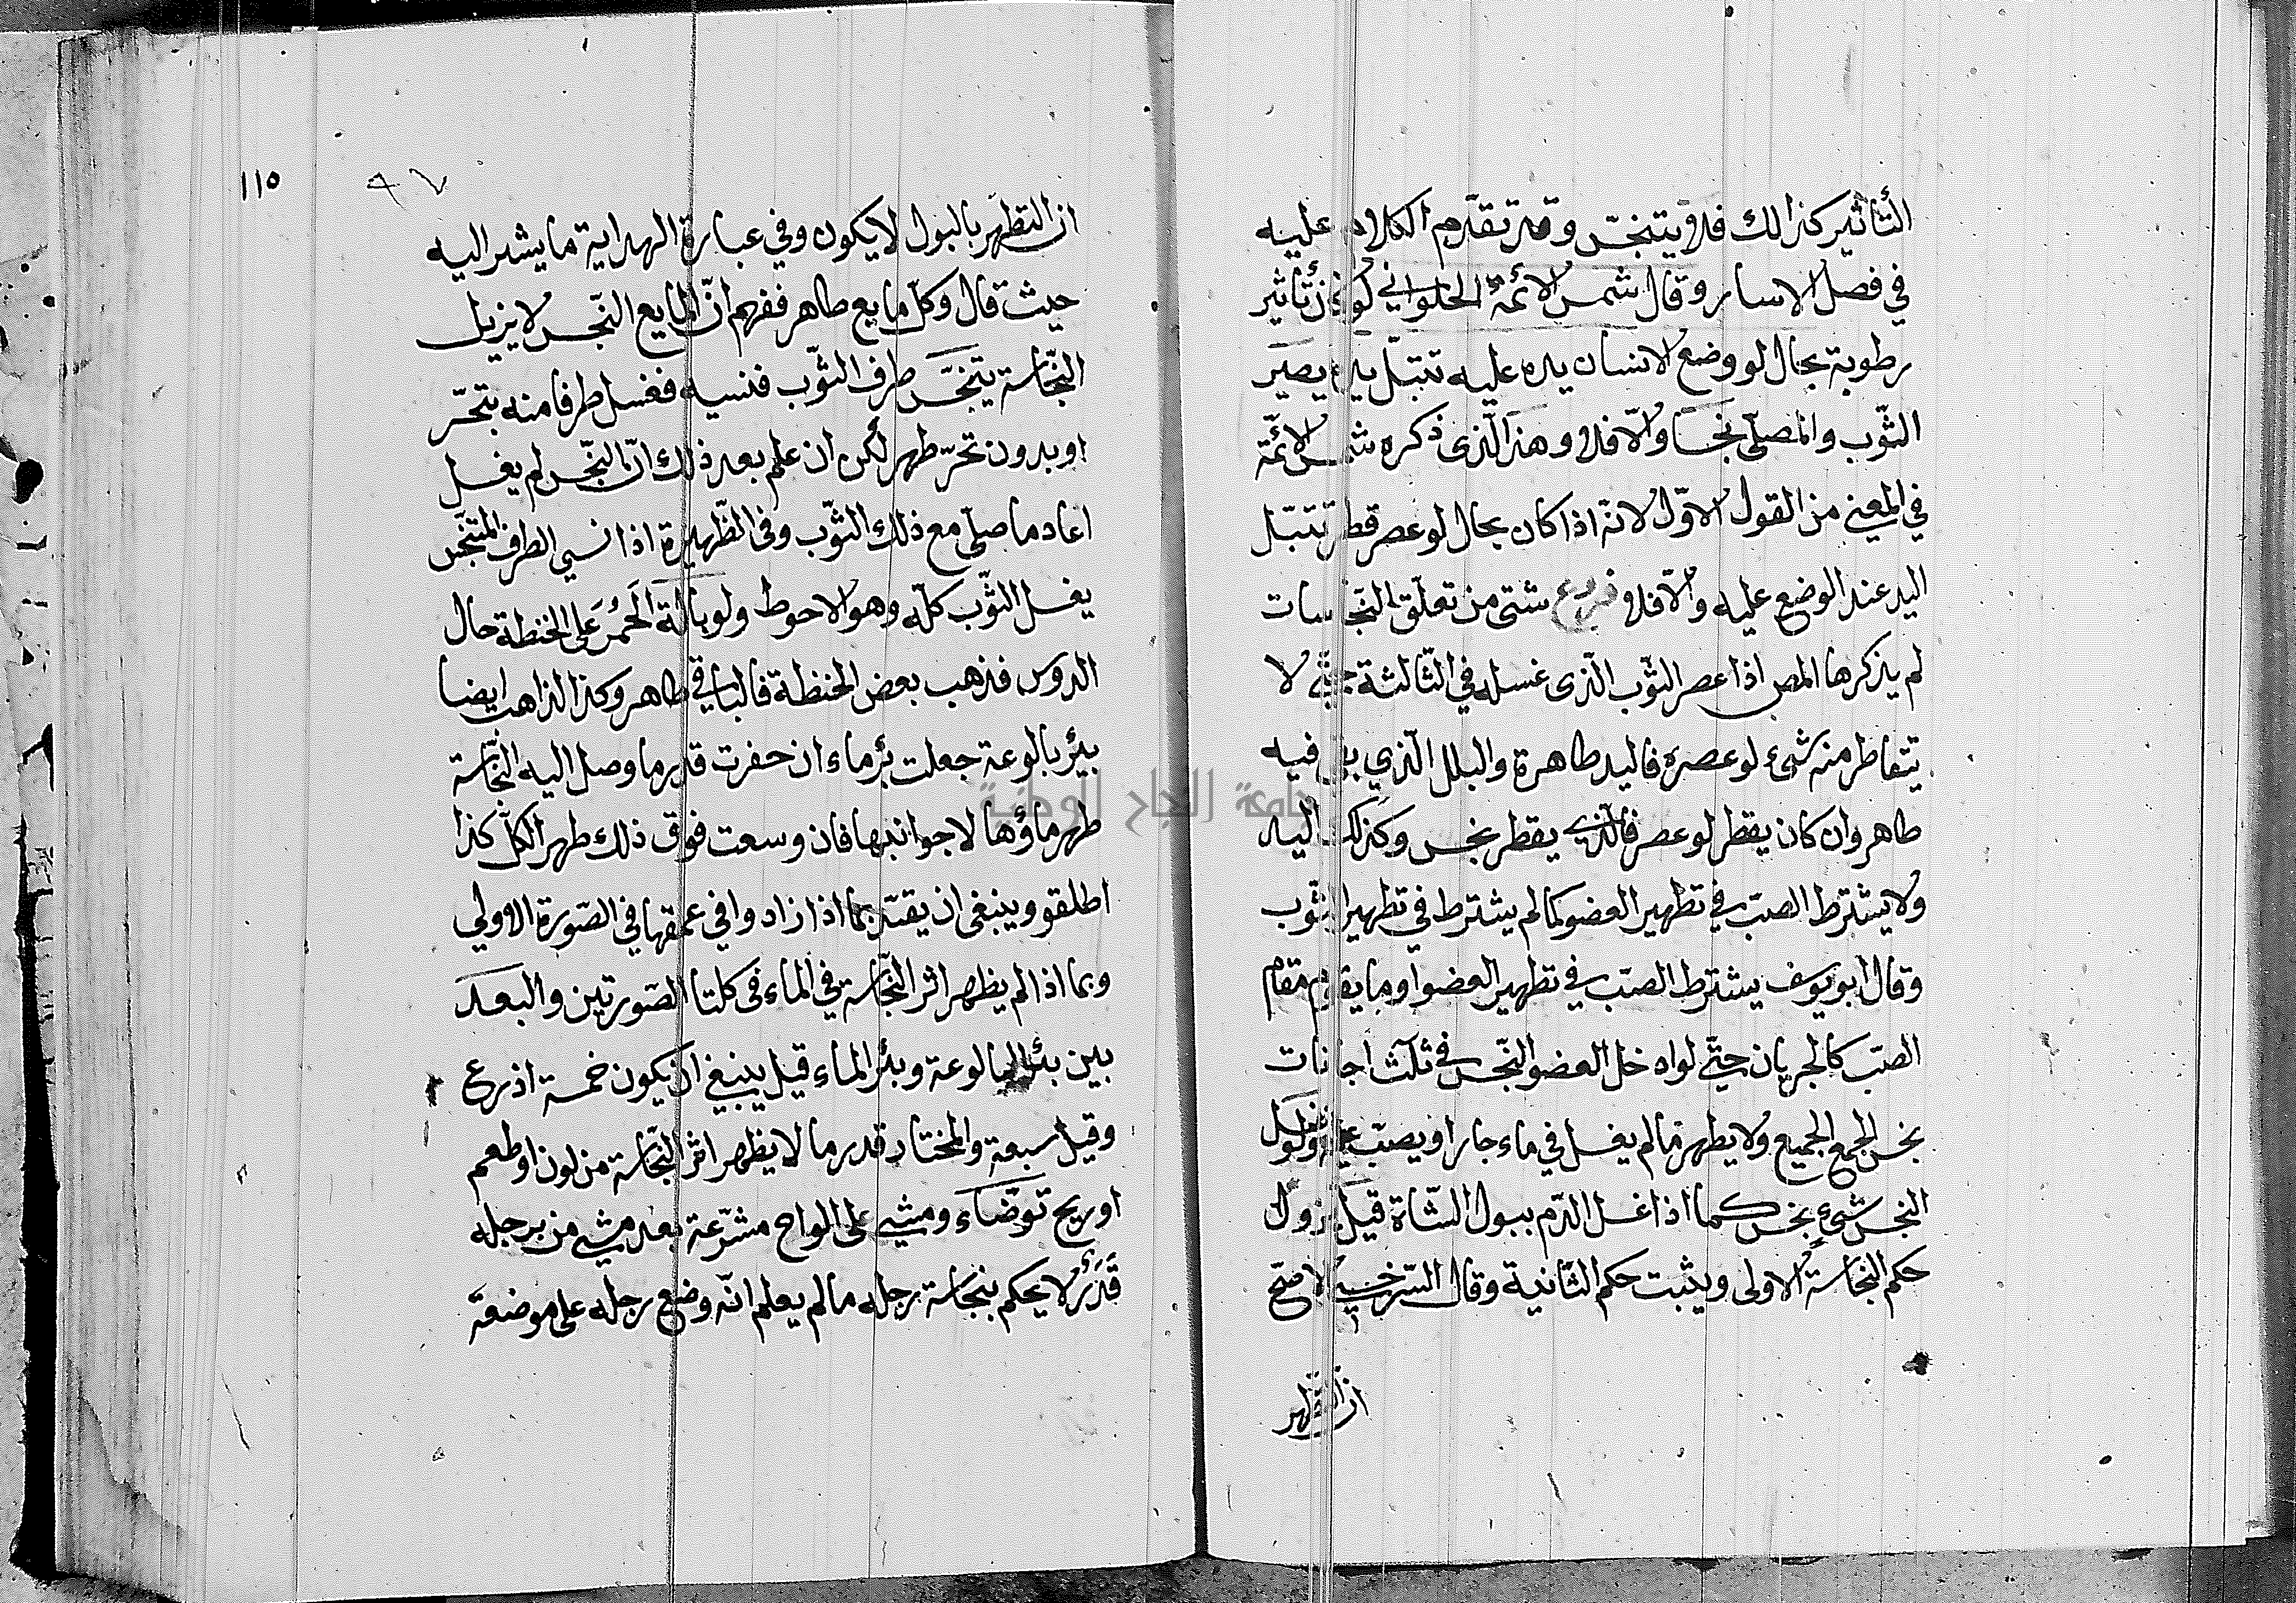 التأثير كذالك فلا يتنجّس وقد تقدّم الكلام عليه
في فصل الاسار وقال شمس الائمة الحلواني لو كان تأثير
رطوبة بحال لو وضع الانسان يده عليه تبتلّ يده يصير
الثّوب والمصلّى نجسا والّا فلا وهذا الّذى ذكره شمس الائمّة
في المعنى من القول الاوّل لانّه اذا كان بحال لو عصر قطر تبتلّ
اليد عند الوضع عليه والّا فلا فروع شتى من تعلّق النّجاسات
لم يذكرها المص اذا عصر الثّوب الّذى غسله في الثّالثة حتّى لا
تتقاطر منه شئ لو عصره فاليد طاهرة والبلل الّذي بقى فيه
طاهر وان كان يقطر لو عصر فالّذى يقطر نجس وكذلك اليد
ولا يشترط الصبّ في تطهير العضو كما لم يشترط في تطهير الثّوب
وقال ابو يوسف يشترط الصبّ في تطهير العضو او ما يقوم مقام
الصبّ كالجريان حتّى لو ادخل العضو النّجس في ثلث اجانات
نجس الجميع ولا يطهر ما لم يغسل في ماء جار او يصبّ عليه ولو غسل
النجس شئ نجس كما اذا غسل الدّم ببول الشّاة قيل يزول
حكم النجاسة الاولى ويثبت حكم الثّانية وقال السّرخسي الاصحّ
ان التطهر
١١٥
٩٧
ان التطهر بالبول لا يكون وفي عبارة الهداية ما يشير اليه
حيث قال وكلّ مايع طاهر ففهم انّ المايع النّجس لا يزيل
النّجاسة يتنجّس طرف الثّوب فنسيه فغسل طرفا منه بتحرّ
او بدون تحرّ طهر لكن ان علم بعد ذلك انّ النّجس لم يغسل
اعاد ما صلّى مع ذلك الثّوب وفى الظّهيرة اذا نسي الطرف المتنجّس
يغسل الثّوب كلّه وهو الاحوط ولو بالة الحمر على الحنطة حال
الدوس فذهب بعض الحنطة فالباقي طاهر وكذا الذاهب ايضا
بيئر بالوعة جعلت بئر ماء ان حفرت قدر ما وصل اليه النّجاسة
طهر ماؤها لا جوانبها فان وسعت فوق ذلك طهر الكلّ كذا
اطلقو وينبغى ان يقيّد بما اذا زادوا في عمقها في الصّورة الاولى
وبما اذا لم يظهر اثر النّجاسة في الماء فى كلتا الصّورتين والبعد
بين بئر البالوعة وبئر الماء قيل ينبغي ان يكون خمسة اذرع
وقيل سبعة والمختار قدر ما لا يظهر اثر النّجاسة من لون او طعم
او ريح توضّاء ومشي على الواح مشرّعة بعد مشي من برجله
قذر لا يحكم بنجاسة رجله ما لم يعلم انّه وضع رجله على موضعه
جامعة النجاح الوطنية